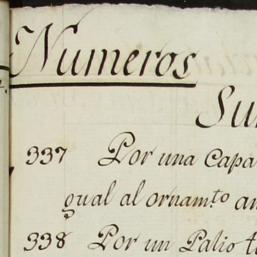 Numeros
337 Por una Capa
gual al ornam.to
338 Por un Palio